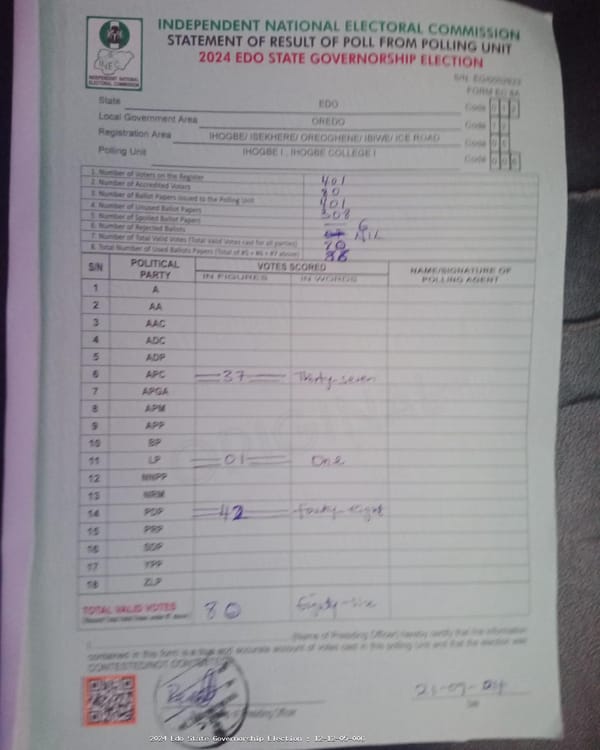 INDEPENDENT NATIONAL ELECTORAL COMMISSION
STATEMENT OF RESULT OF POLL FROM POLLING UNIT
2024 EDO STATE GOVERNORSHIP ELECTION
INEC
INDEPENDENT NATIONAL ELECTORAL COMMISSION
FORM EC 8A
State EDO Code
Local Government Area OREDO Code
Registration Area IHOGBE/ ISEKHERE/ OREOGHENE/ IBIWE/ ICE ROAD Code
Polling Unit IHOGBE I , IHOGBE COLLEGE I Code
1. Number of Voters on the Register 401
2. Number of Accredited Voters
3. Number of Ballot Papers issued to the Polling Unit 401
4. Number of Unused Ballot Papers 308
5. Number of Spoiled Ballot Papers
6. Number of Rejected Ballots
7. Number of Total Valid Votes (Total Valid Votes cast for all parties)
8. Total Number of Used Ballots Papers (Total of #5 + #6 + #7 above)
S/N POLITICAL PARTY VOTES SCORED NAME/SIGNATURE OF POLLING AGENT
IN FIGURES IN WORDS
1 A
2 AA
3 AAC
4 ADC
5 ADP
6 APC 37 Thirty-seven
7 APGA
8 APM
9 APP
10 BP
11 LP 01 One
12 NNPP
13 NRM
14 PDP forty-eight
15 PRP
16 SDP
17 YPP
18 ZLP
TOTAL VALID VOTES Eighty-six
(Name of Presiding Officer) hereby certify that the information
contained in this form is a true and accurate account of votes cast in this polling Unit and that the election was
CONTESTED/NOT CONTESTED
21-09-24
of Presiding Officer
2024 Edo State Governorship Election : 12-12-05-006